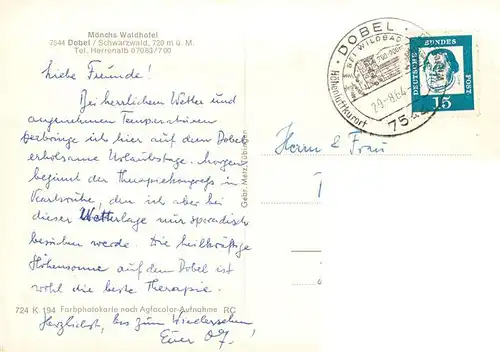 Mönchs Waldhotel
7544 Dobel / Schwarzwald, 720 m ü. M.
Tel. Herrenalb 07083/700
Liebe Freunde!
Bei herrlichem Wetter und
angenehmen Temperaturen
verbringe ich hier auf dem Dobel
erholsame Urlaubstage. Morgen
beginnt der Therapiekongress in
Karlsruhe, den ich aber bei
dieser Wetterlage nur sporadisch
besuchen werde. Die heilkräftige
Höhensonne auf dem Dobel ist
wohl die beste Therapie.
Herzlichst, bis zum Wiedersehen!
Euer
724 K 194 Farbphotokarte nach Agfacolor-Aufnahme RC
Gebr. Metz, Tübingen
DOBEL
BEI WILDBAD
Höhenluftkurort
29.-8.64
DEUTSCHE BUNDESPOST
15
Herrn & Frau